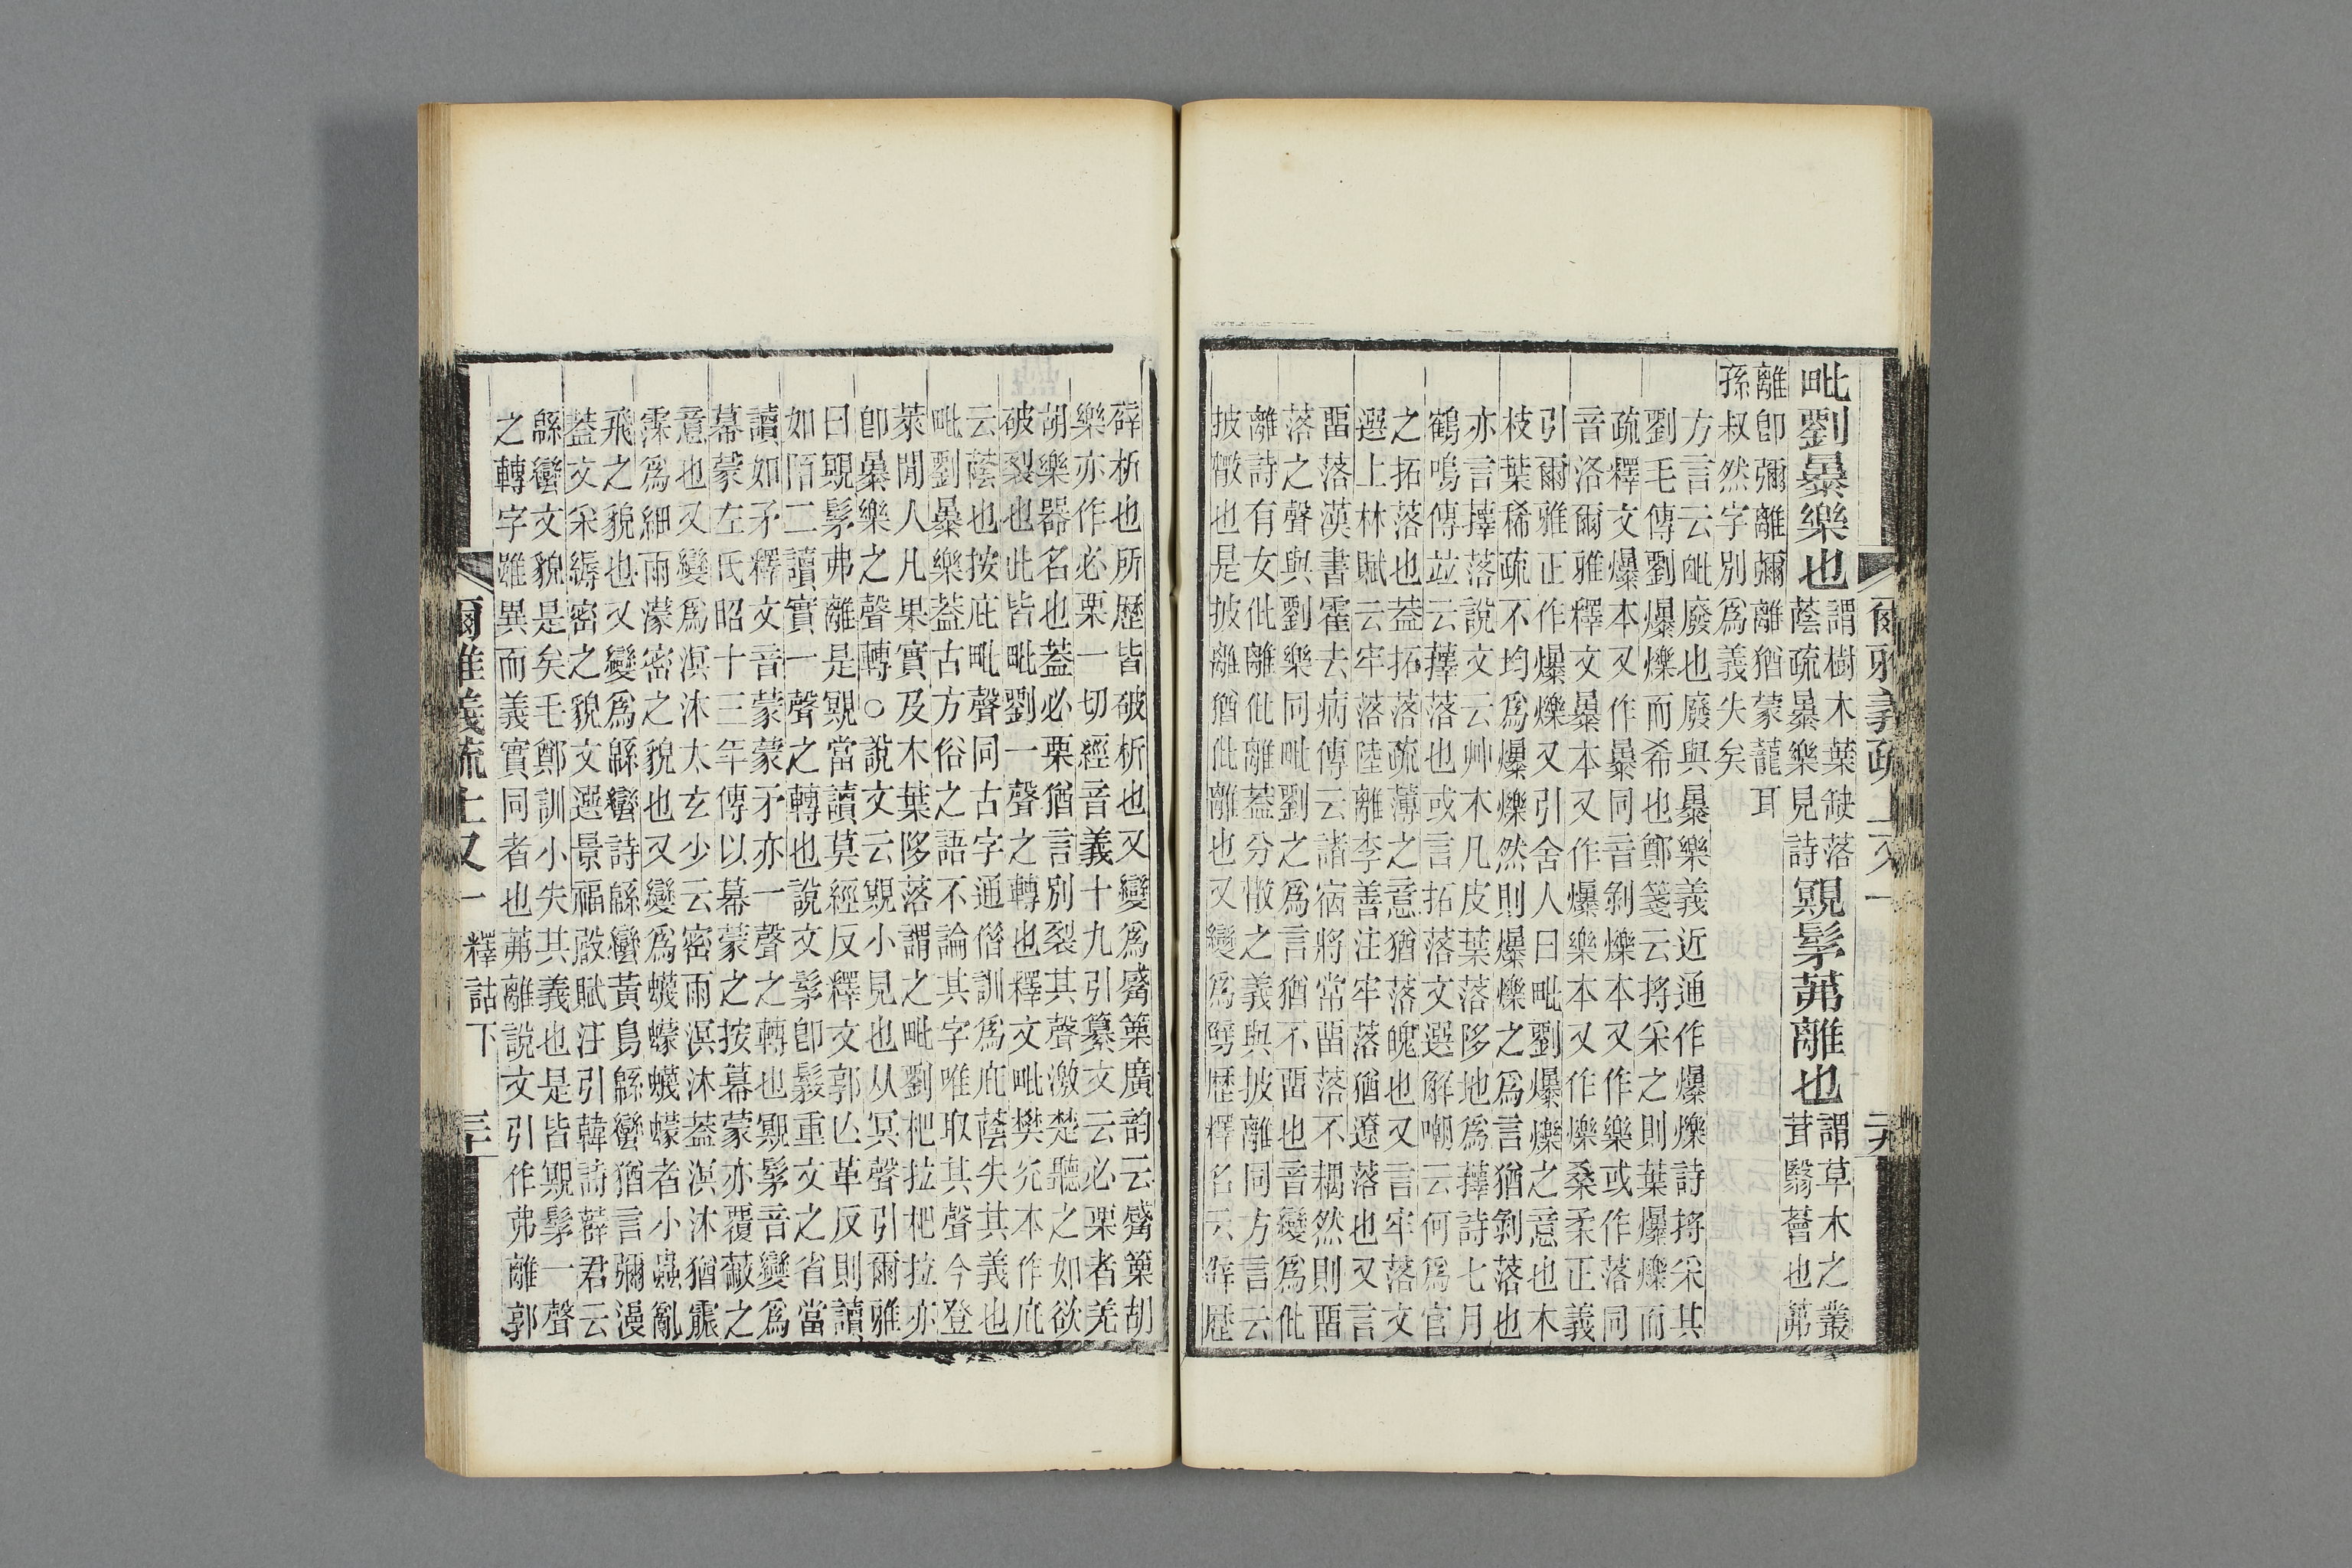 爾雅義疏 上又一 釋詁下 二十九
毗劉㬥樂也
謂樹木葉缺落
蔭疏㬥樂見詩
覭髳茀離也
謂草木之叢
茸翳薈也茀
離卽彌離彌離猶蒙蘢耳
孫叔然字別爲義失矣
方言云㡙廢也廢與㬥樂義近通作爆爍詩捋采其
劉毛傳劉爆爍而希也鄭箋云捋采之則葉爆爍而
疏釋文爆本又作㬥同音剝爍本又作樂或作落同
音洛爾雅釋文㬥本又作爆樂本又作爍桑柔正義
引爾雅正作爆爍又引舍人曰毗劉爆爍之意也木
枝葉稀疏不均爲爆爍然則爆爍之爲言猶剝落也
亦言蘀落說文云艸木凡皮葉落陊地爲蘀詩七月
鶴鳴傳竝云蘀落也或言拓落文選解嘲云何爲官
之拓落也葢拓落疏薄之意猶落魄也又言牢落文
選上林賦云牢落陸離李善注牢落猶遼落也又言
畱落漢書霍去病傳云諸宿將常畱落不耦然則畱
落之聲與劉樂同毗劉之爲言猶不畱也音變爲仳
離詩有女仳離仳離葢分散之義與披離同方言云
披散也是披離猶仳離也又變爲劈歷釋名云辟歷
辟析也所歷皆破析也又變爲觱篥廣韵云觱篥胡
樂亦作必栗一切經音義十九引纂文云必栗者羌
胡樂器名也葢必栗猶言別裂其聲激楚聽之如欲
破裂也此皆毗劉一聲之轉也釋文毗樊光本作庇
云蔭也按庇毗聲同古字通偕訓爲庇蔭失其義也
毗劉㬥樂葢古方俗之語不論其字唯取其聲今登
萊閒人凡果實及木葉陊落謂之毗劉杷拉杷拉亦
卽㬥樂之聲轉○說文云覭小見也从冥聲引爾雅
曰覭髳弗離是覭當讀莫經反釋文郭亡革反則讀
如陌二讀實一聲之轉也說文髳卽髮重文之省當
讀如矛釋文音蒙蒙矛亦一聲之轉也覭髳音變爲
幕蒙左氏昭十三年傳以幕蒙之按幕蒙亦覆蔽之
意也又變爲溟沐太玄少云密雨溟沐葢溟沐猶霢
霂爲細雨濛密之貌也又變爲蠛蠓蠛蠓者小蟲亂
飛之貌也又變爲緜蠻詩緜蠻黃鳥緜蠻猶言彌漫
葢文采縟密之貌文選景福殿賦注引韓詩薛君云
緜蠻文貌是矣毛鄭訓小失其義也是皆覭髳一聲
之轉字雖異而義實同者也茀離說文引作弗離郭
爾雅義疏 上又一 釋詁下 三十